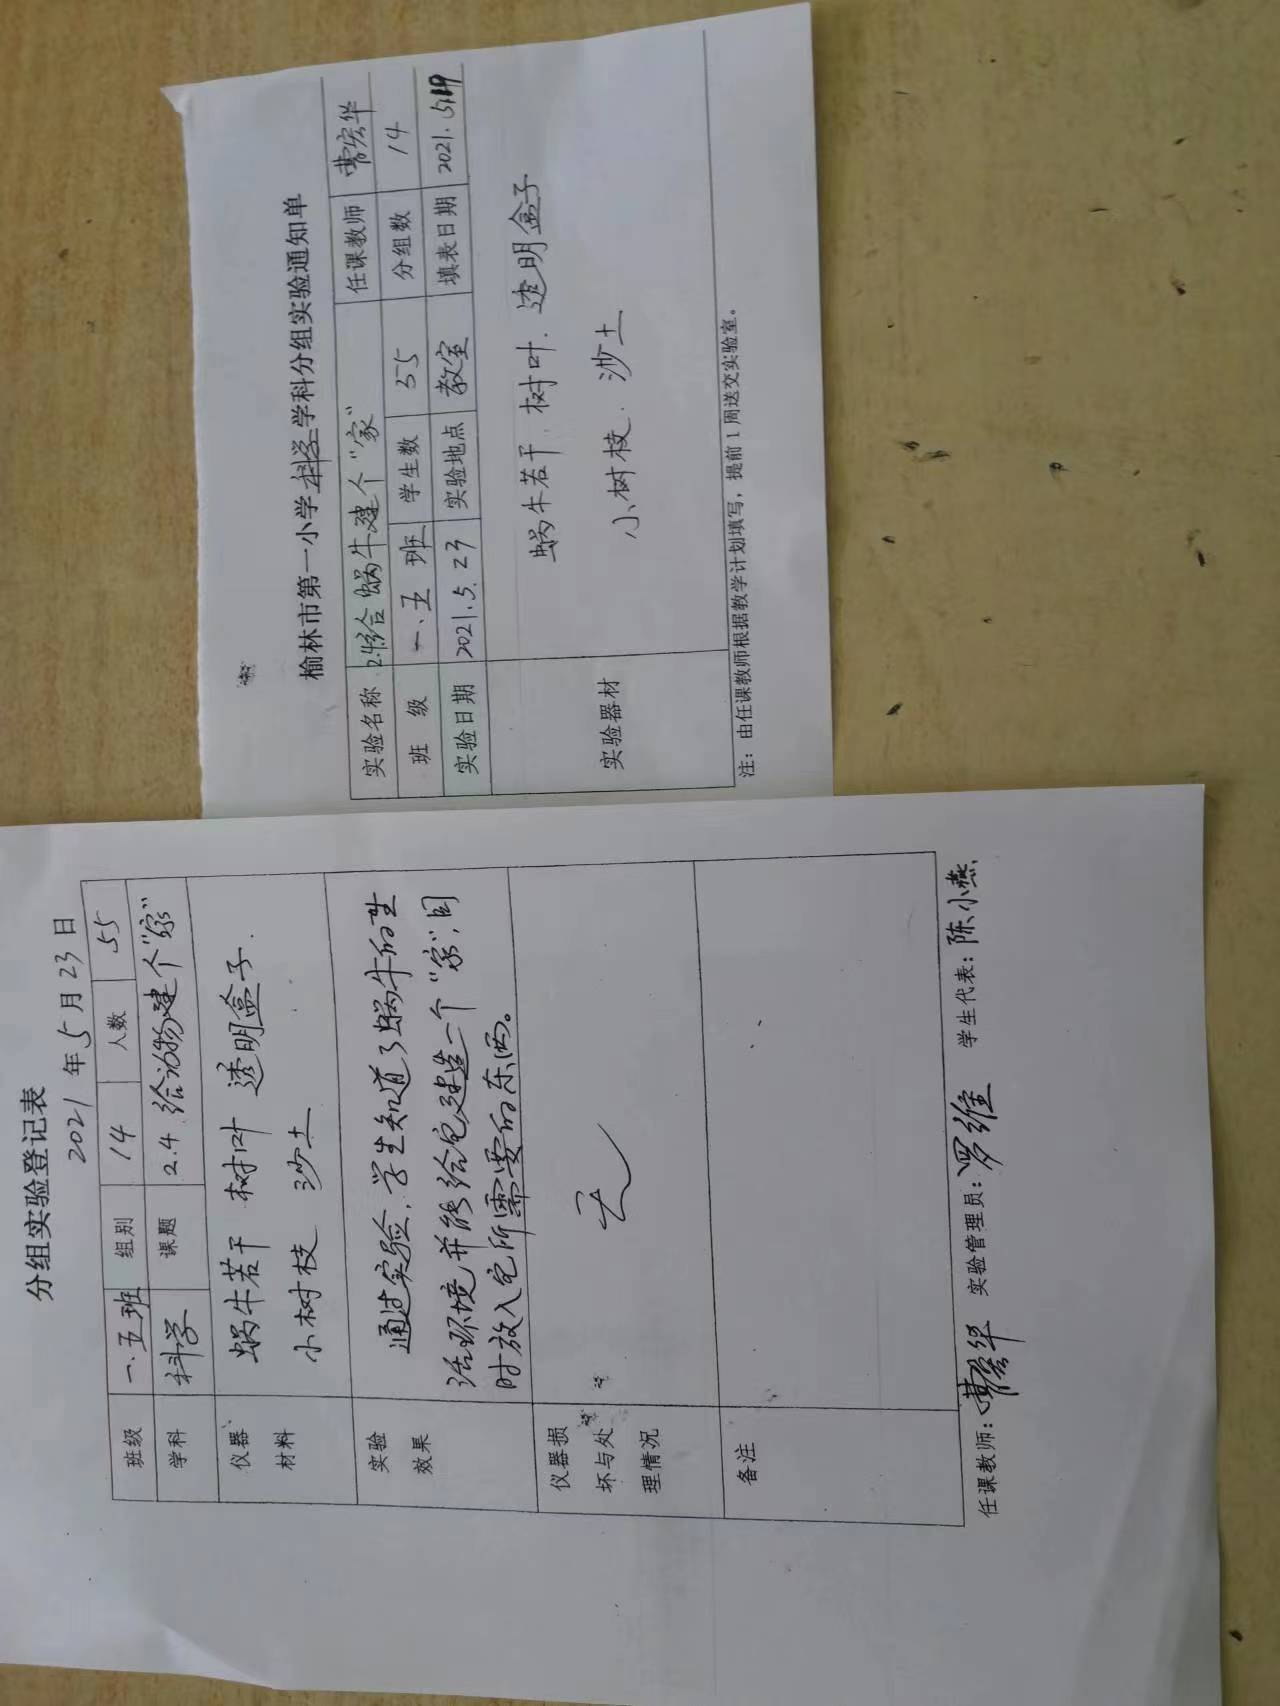 分组实验登记表
2021年5月23日
班级 一.五班 组别 14 人数 55
学科 科学 课题 2.4 给动物建个“家”
仪器材料 蜗牛若干 树叶 透明盒子
小树枝 沙土
实验效果 通过实验,学生知道了蜗牛的生
活环境,并能给它建造一个“家”,同
时放入它所需要的东西。
仪器损坏与处理情况 无
备注
任课教师: 实验管理员:罗维 学生代表:陈小燕
榆林市第一小学科学学科分组实验通知单
实验名称 2.4给蜗牛建个“家” 任课教师
班 级 一.五班 学生数 55 分组数 14
实验日期 2021.5.23 实验地点 教室 填表日期 2021.5.19
实验器材 蜗牛若干. 树叶. 透明盒子
小树枝. 沙土
注:由任课教师根据教学计划填写,提前1周送交实验室。